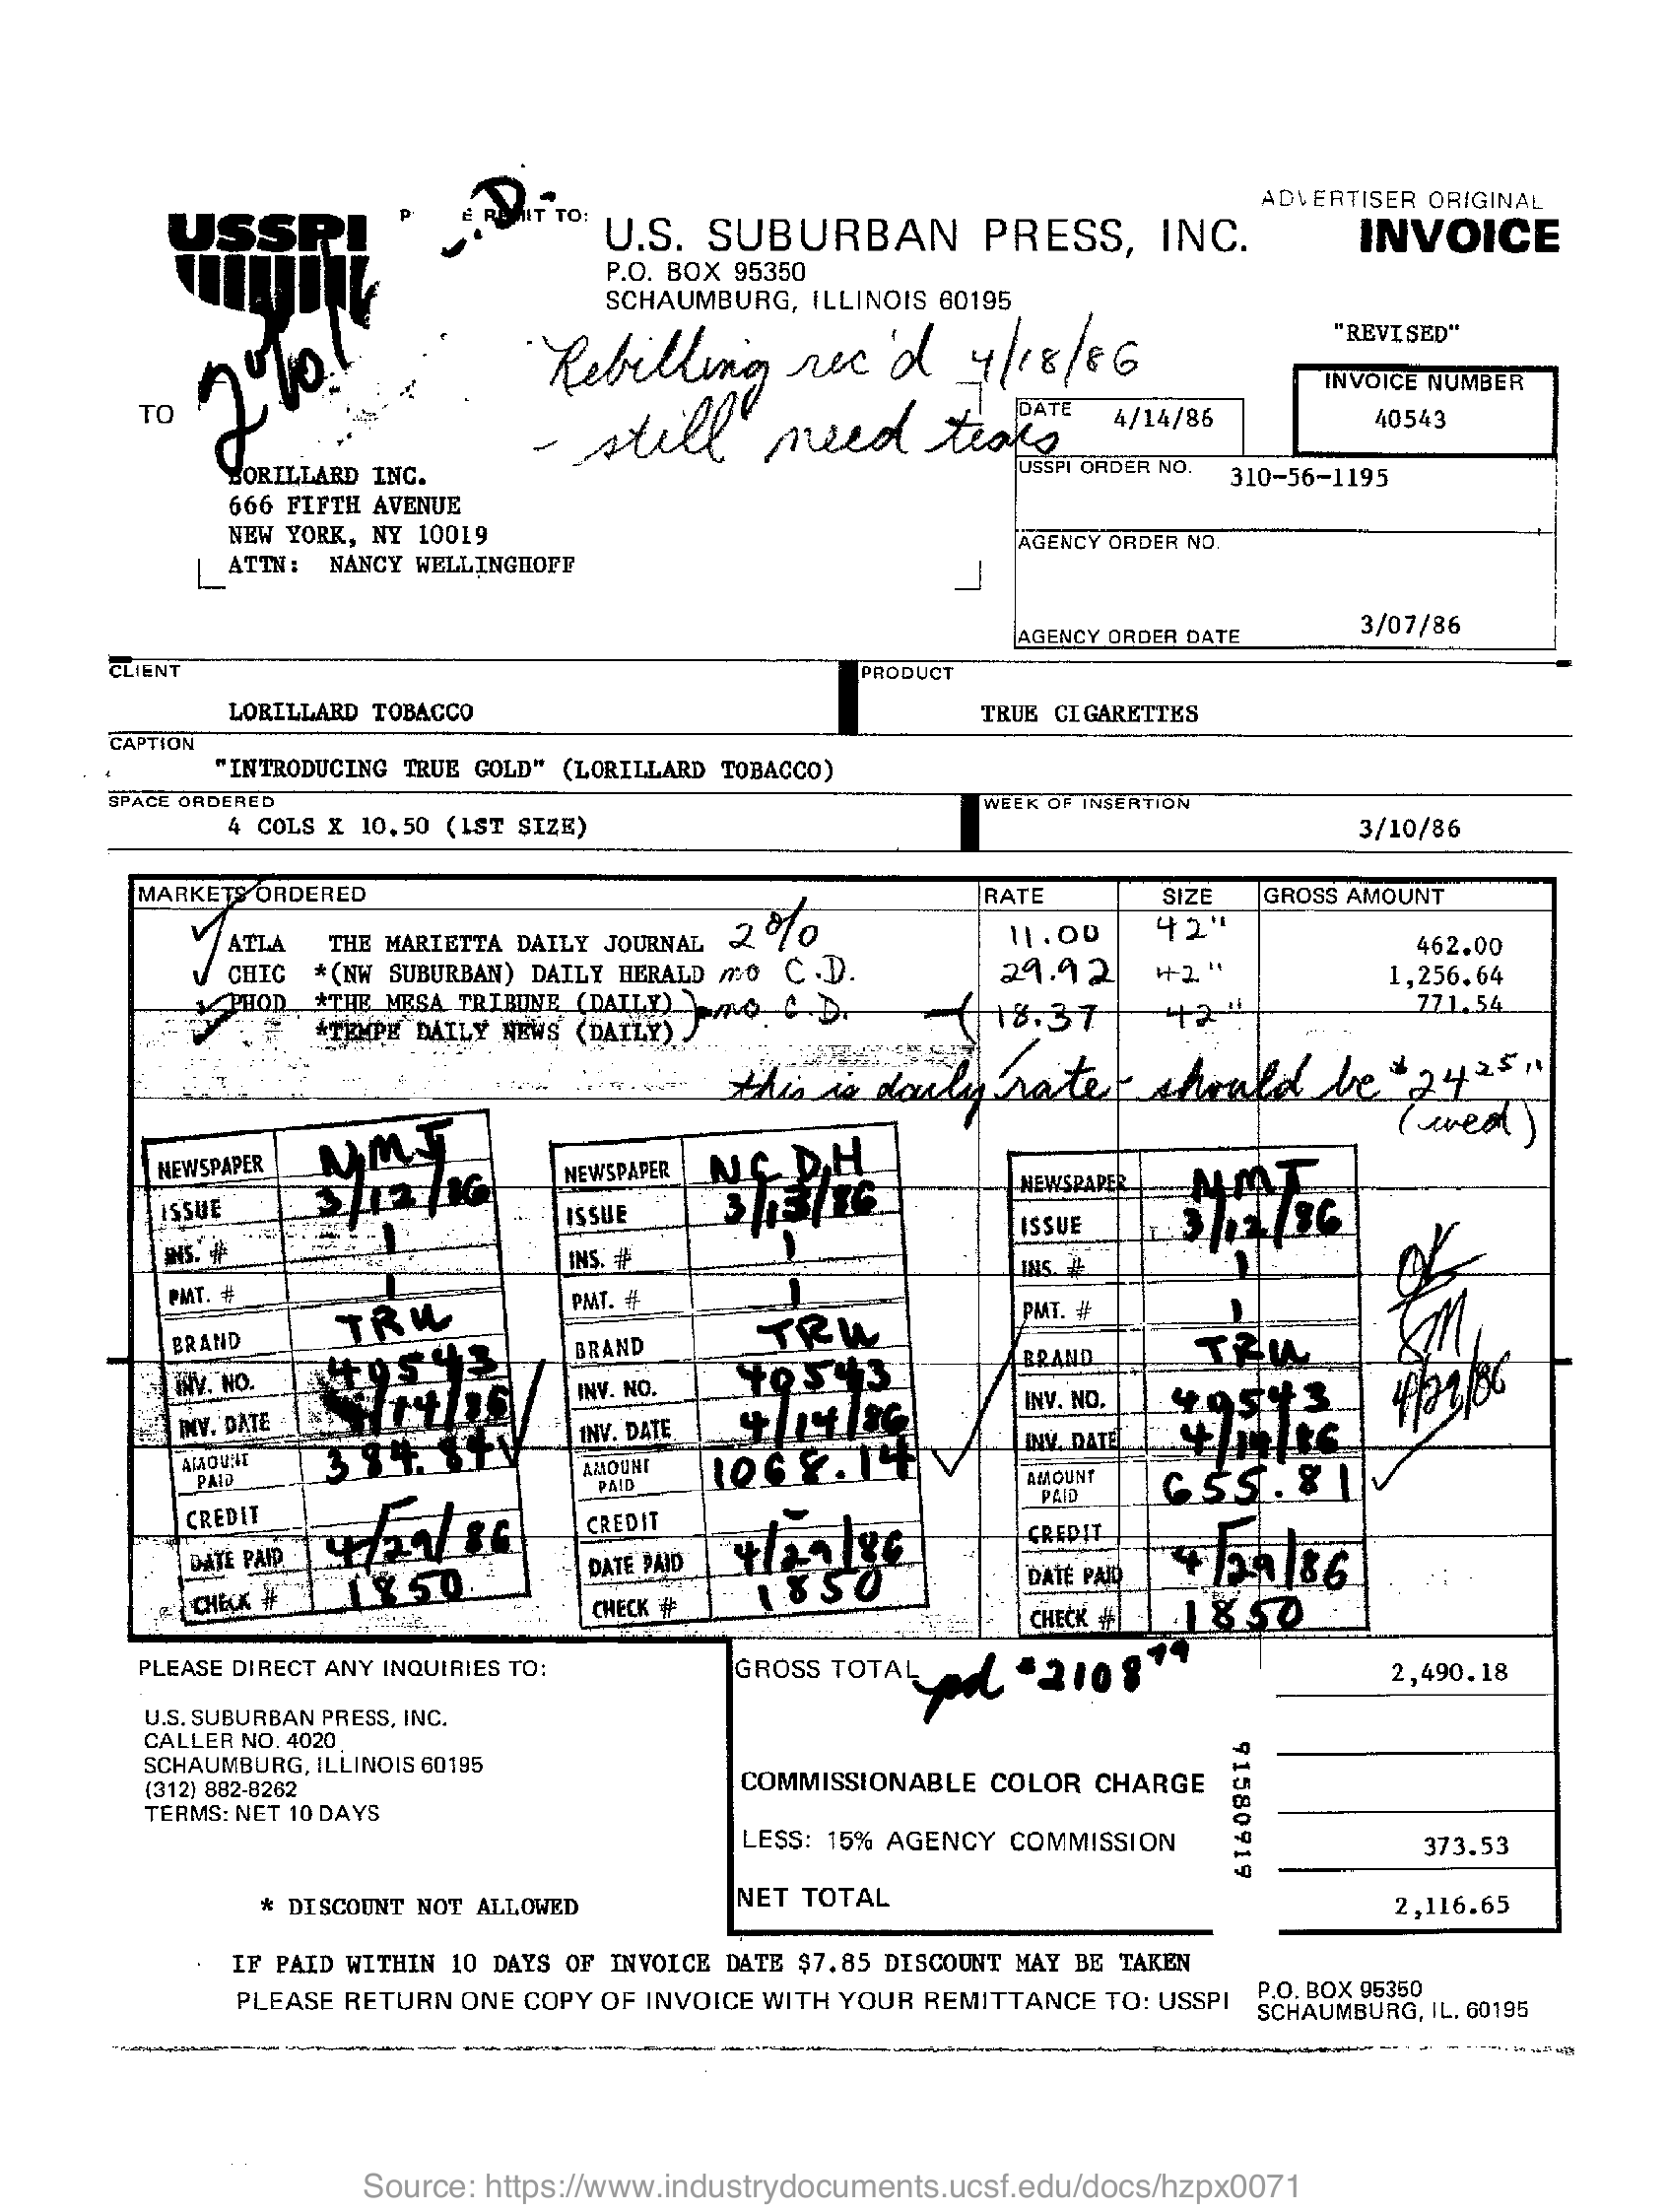 ADVERTISER ORIGINAL
USSPI
E REMIT TO:
U.S. SUBURBAN PRESS, INC.
INVOICE
P.O. BOX 95350
SCHAUMBURG, ILLINOIS 60195
"REVISED"
Rebilling rec'd 4/18/86
- still need tears
2%
C.D.
INVOICE NUMBER
40543
TO
DATE 4/14/86
LORILLARD INC.
666 FIFTH AVENUE
NEW YORK, NY 10019
ATTN: NANCY WELLINGHOFF
USSPI ORDER NO. 310-56-1195
AGENCY ORDER NO.
AGENCY ORDER DATE 3/07/86
CLIENT
LORILLARD TOBACCO
PRODUCT
TRUE CIGARETTES
CAPTION
"INTRODUCING TRUE GOLD" (LORILLARD TOBACCO)
SPACE ORDERED
4 COLS X 10.50 (1ST SIZE)
WEEK OF INSERTION
3/10/86
MARKETS ORDERED RATE SIZE GROSS AMOUNT
ATLA THE MARIETTA DAILY JOURNAL 2% 11.00 42" 462.00
CHIC *(NW SUBURBAN) DAILY HERALD no C.D. 29.92 42" 1,256.64
PHOD *THE MESA TRIBUNE (DAILY) no C.D. 18.37 42" 771.54
*TEMPE DAILY NEWS (DAILY)
this is daily rate - should be $24 25"
(wed)
NEWSPAPER NMJ
ISSUE 3/12/86
INS. # 1
PMT. # 1
BRAND TRU
INV. NO. 40543
INV. DATE 4/14/86
AMOUNT PAID 384.84
CREDIT -
DATE PAID 4/29/86
CHECK # 1850
NEWSPAPER NC DH
ISSUE 3/13/86
INS. # 1
PMT. # 1
BRAND TRU
INV. NO. 40543
INV. DATE 4/14/86
AMOUNT PAID 1068.14
CREDIT -
DATE PAID 4/29/86
CHECK # 1850
NEWSPAPER NMT
ISSUE 3/12/86
INS. # 1
PMT. # 1
BRAND TRU
INV. NO. 40543
INV. DATE 4/14/86
AMOUNT PAID 655.81
CREDIT -
DATE PAID 4/29/86
CHECK # 1850
OK
4/29/86
PLEASE DIRECT ANY INQUIRIES TO:
U.S. SUBURBAN PRESS, INC.
CALLER NO. 4020
SCHAUMBURG, ILLINOIS 60195
(312) 882-8262
TERMS: NET 10 DAYS
GROSS TOTAL pd $2108 79 2,490.18
COMMISSIONABLE COLOR CHARGE
LESS: 15% AGENCY COMMISSION 373.53
NET TOTAL 2,116.65
91580919
* DISCOUNT NOT ALLOWED
IF PAID WITHIN 10 DAYS OF INVOICE DATE $7.85 DISCOUNT MAY BE TAKEN
PLEASE RETURN ONE COPY OF INVOICE WITH YOUR REMITTANCE TO: USSPI
P.O. BOX 95350
SCHAUMBURG, IL. 60195
Source: https://www.industrydocuments.ucsf.edu/docs/hzpx0071